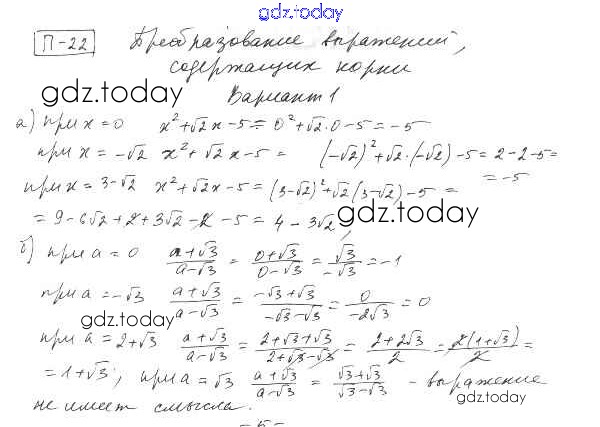 gdz.today
П-22 Преобразование выражений,
содержащих корни
gdz.today
Вариант 1
а) при x = 0 x² + √2 x - 5 = 0² + √2 · 0 - 5 = -5
при x = -√2 x² + √2 x - 5 = (-√2)² + √2 · (-√2) - 5 = 2 - 2 - 5 =
= -5
при x = 3 - √2 x² + √2 x - 5 = (3 - √2)² + √2 (3 - √2) - 5 =
= 9 - 6√2 + 2 + 3√2 - 2 - 5 = 4 - 3√2,
gdz.today
б) при a = 0 (a + √3)/(a - √3) = (0 + √3)/(0 - √3) = √3/(-√3) = -1
при a = -√3 (a + √3)/(a - √3) = (-√3 + √3)/(-√3 - √3) = 0/(-2√3) = 0
gdz.today
при a = 2 + √3 (a + √3)/(a - √3) = (2 + √3 + √3)/(2 + √3 - √3) = (2 + 2√3)/2 = 2(1 + √3)/2 =
= 1 + √3; при a = √3 (a + √3)/(a - √3) = (√3 + √3)/(√3 - √3) - выражение
gdz.today
не имеет смысла.
- 5 -